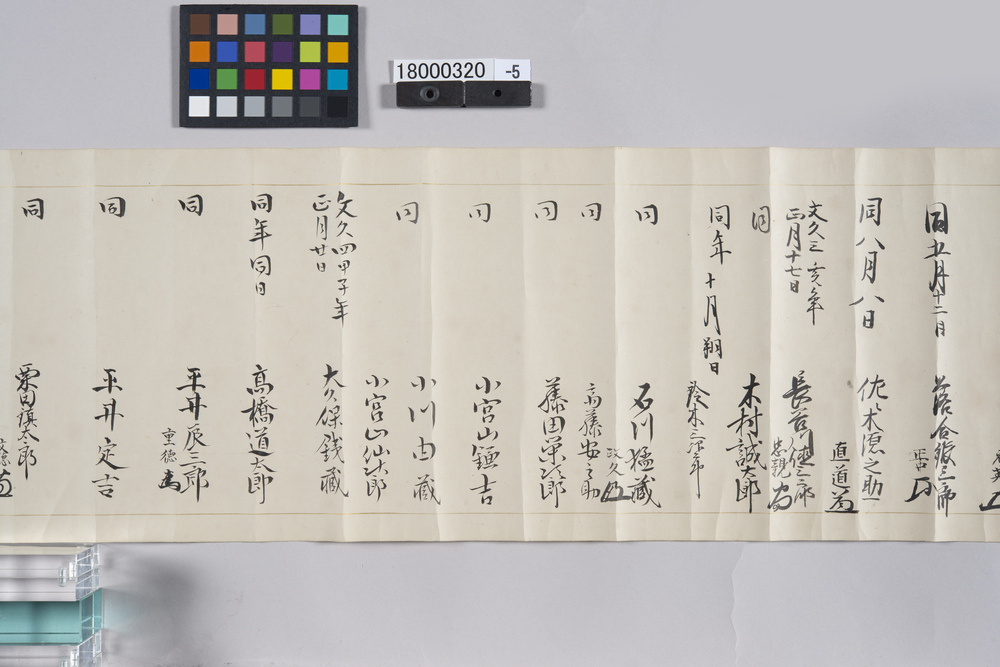 18000320 -5
同五月十二日
落合張三郎
正吉
同八月八日
佐木源之助
直道
文久三亥年
正月十七日
長谷川健三郎
忠親
同
木村誠太郎
同年十月朔日
鈴木三郎
同
石川猛蔵
政久
同
斎藤安之助
同
藤田栄次郎
同
小宮山鎚吉
同
小川由蔵
小宮山仙次郎
文久四甲子年
正月廿日
大久保銭蔵
同年同日
高橋道太郎
同
平井辰三郎
重徳
同
平井定吉
同
栗田慎太郎